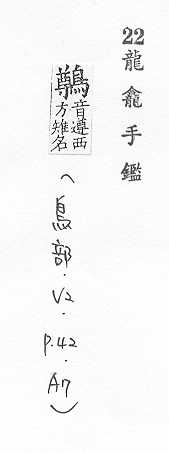 22龍龕手鑑
鷷音遵西方雉名
(鳥部.V2.P.42.A7)